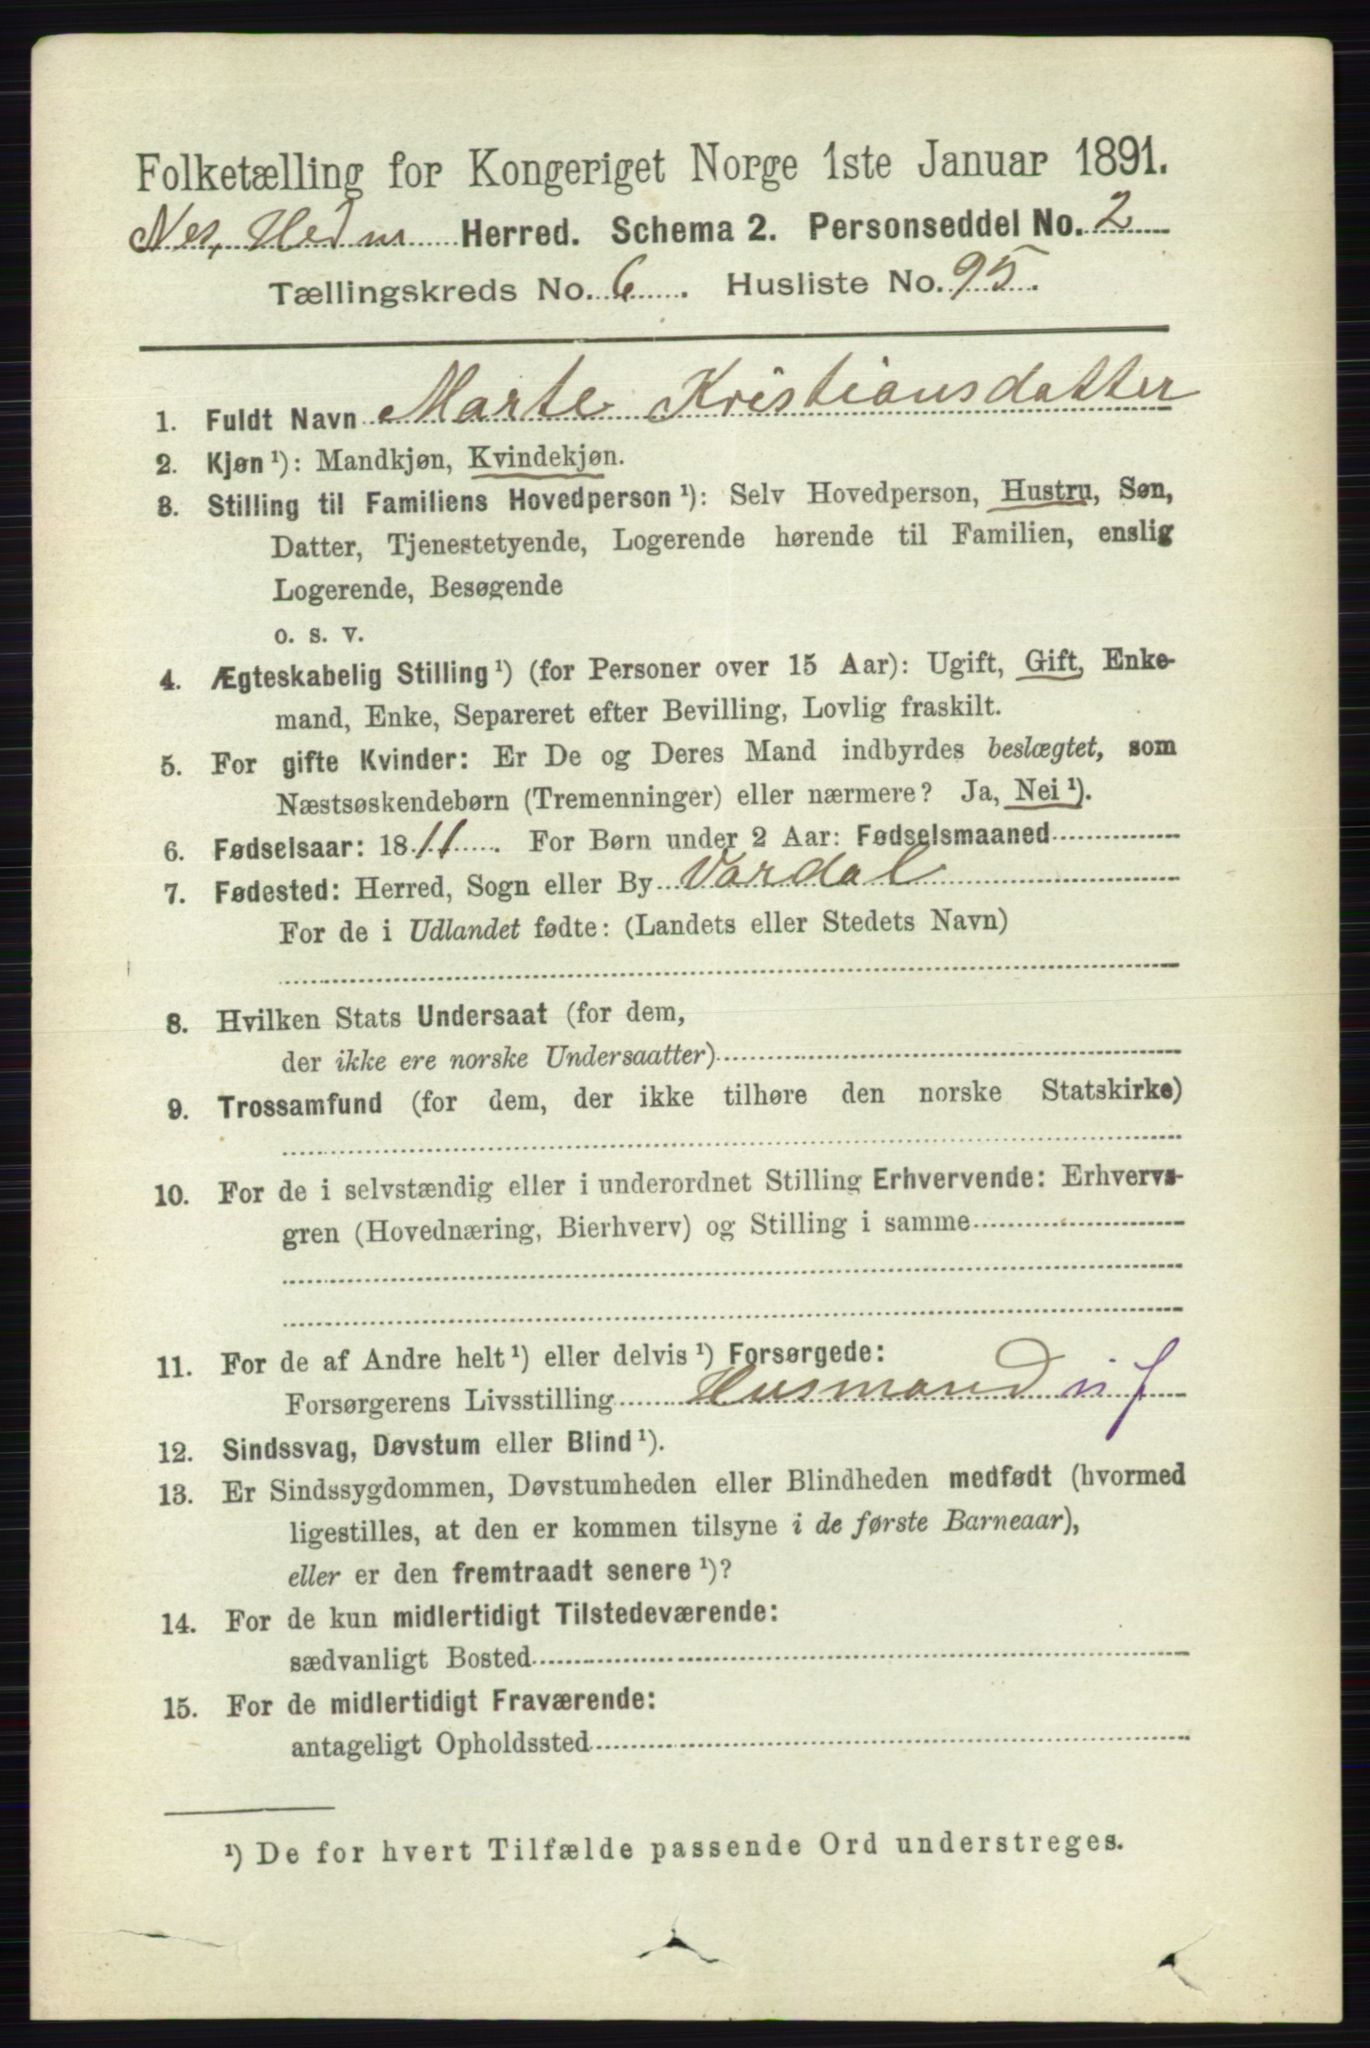 Folketælling for Kongeriget Norge 1ste Januar 1891.
Nes, Hedm Herred. Schema 2. Personseddel No. 2
Tællingskreds No. 6. Husliste No. 95.
1. Fuldt Navn Marte Kristiansdatter
2. Kjøn ¹): Mandkjøn, Kvindekjøn.
3. Stilling til Familiens Hovedperson ¹): Selv Hovedperson, Hustru, Søn,
Datter, Tjenestetyende, Logerende hørende til Familien, enslig
Logerende, Besøgende
o. s. v.
4. Ægteskabelig Stilling ¹) (for Personer over 15 Aar): Ugift, Gift, Enke-
mand, Enke, Separeret efter Bevilling, Lovlig fraskilt.
5. For gifte Kvinder: Er De og Deres Mand indbyrdes beslægtet, som
Næstsøskendebørn (Tremenninger) eller nærmere? Ja, Nei ¹).
6. Fødselsaar: 1811. For Børn under 2 Aar: Fødselsmaaned
7. Fødested: Herred, Sogn eller By Vardal
For de i Udlandet fødte: (Landets eller Stedets Navn)
8. Hvilken Stats Undersaat (for dem,
der ikke ere norske Undersaatter)
9. Trossamfund (for dem, der ikke tilhøre den norske Statskirke)
10. For de i selvstændig eller i underordnet Stilling Erhvervende: Erhvervs-
gren (Hovednæring, Bierhverv) og Stilling i samme
11. For de af Andre helt ¹) eller delvis ¹) Forsørgede:
Forsørgerens Livsstilling Husmand
12. Sindssvag, Døvstum eller Blind ¹).
13. Er Sindssygdommen, Døvstumheden eller Blindheden medfødt (hvormed
ligestilles, at den er kommen tilsyne i de første Barneaar),
eller er den fremtraadt senere ¹)?
14. For de kun midlertidigt Tilstedeværende:
sædvanligt Bosted
15. For de midlertidigt Fraværende:
antageligt Opholdssted
¹) De for hvert Tilfælde passende Ord understreges.